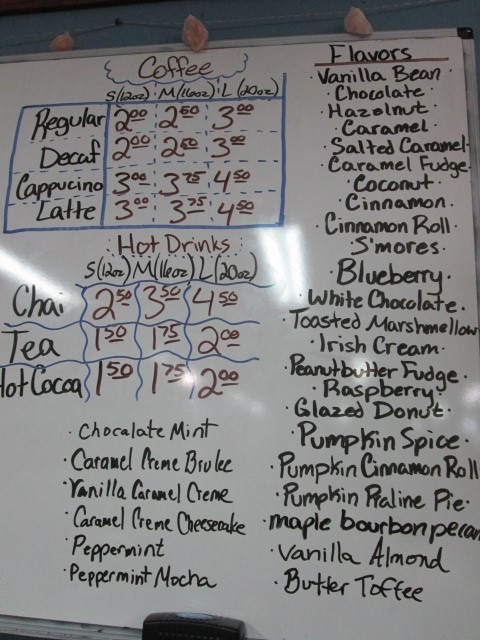 Coffee
S(12oz) M(16oz) L(20oz)
Regular 2.00 2.50 3.00
Decaf 2.00 2.50 3.00
Cappucino 3.00 3.75 4.50
Latte 3.00 3.75 4.50
Hot Drinks
S(12oz) M(16oz) L(20oz)
Chai 2.50 3.50 4.50
Tea 1.50 1.75 2.00
Hot Cocoa 1.50 1.75 2.00
· Chocalate Mint
· Caramel Creme Brulee
· Vanilla Caramel Creme
· Caramel Creme Cheesecake
· Peppermint
· Peppermint Mocha
Flavors
· Vanilla Bean ·
· Chocolate ·
· Hazelnut ·
· Caramel ·
· Salted Caramel ·
· Caramel Fudge ·
· Coconut ·
· Cinnamon ·
· Cinnamon Roll ·
· S'mores ·
· Blueberry ·
· White Chocolate ·
· Toasted Marshmellow
· Irish Cream ·
· Peanutbutter Fudge ·
· Raspberry ·
· Glazed Donut ·
· Pumpkin Spice ·
· Pumpkin Cinnamon Roll
· Pumpkin Praline Pie ·
· maple bourbon pecan
· Vanilla Almond
· Butter Toffee